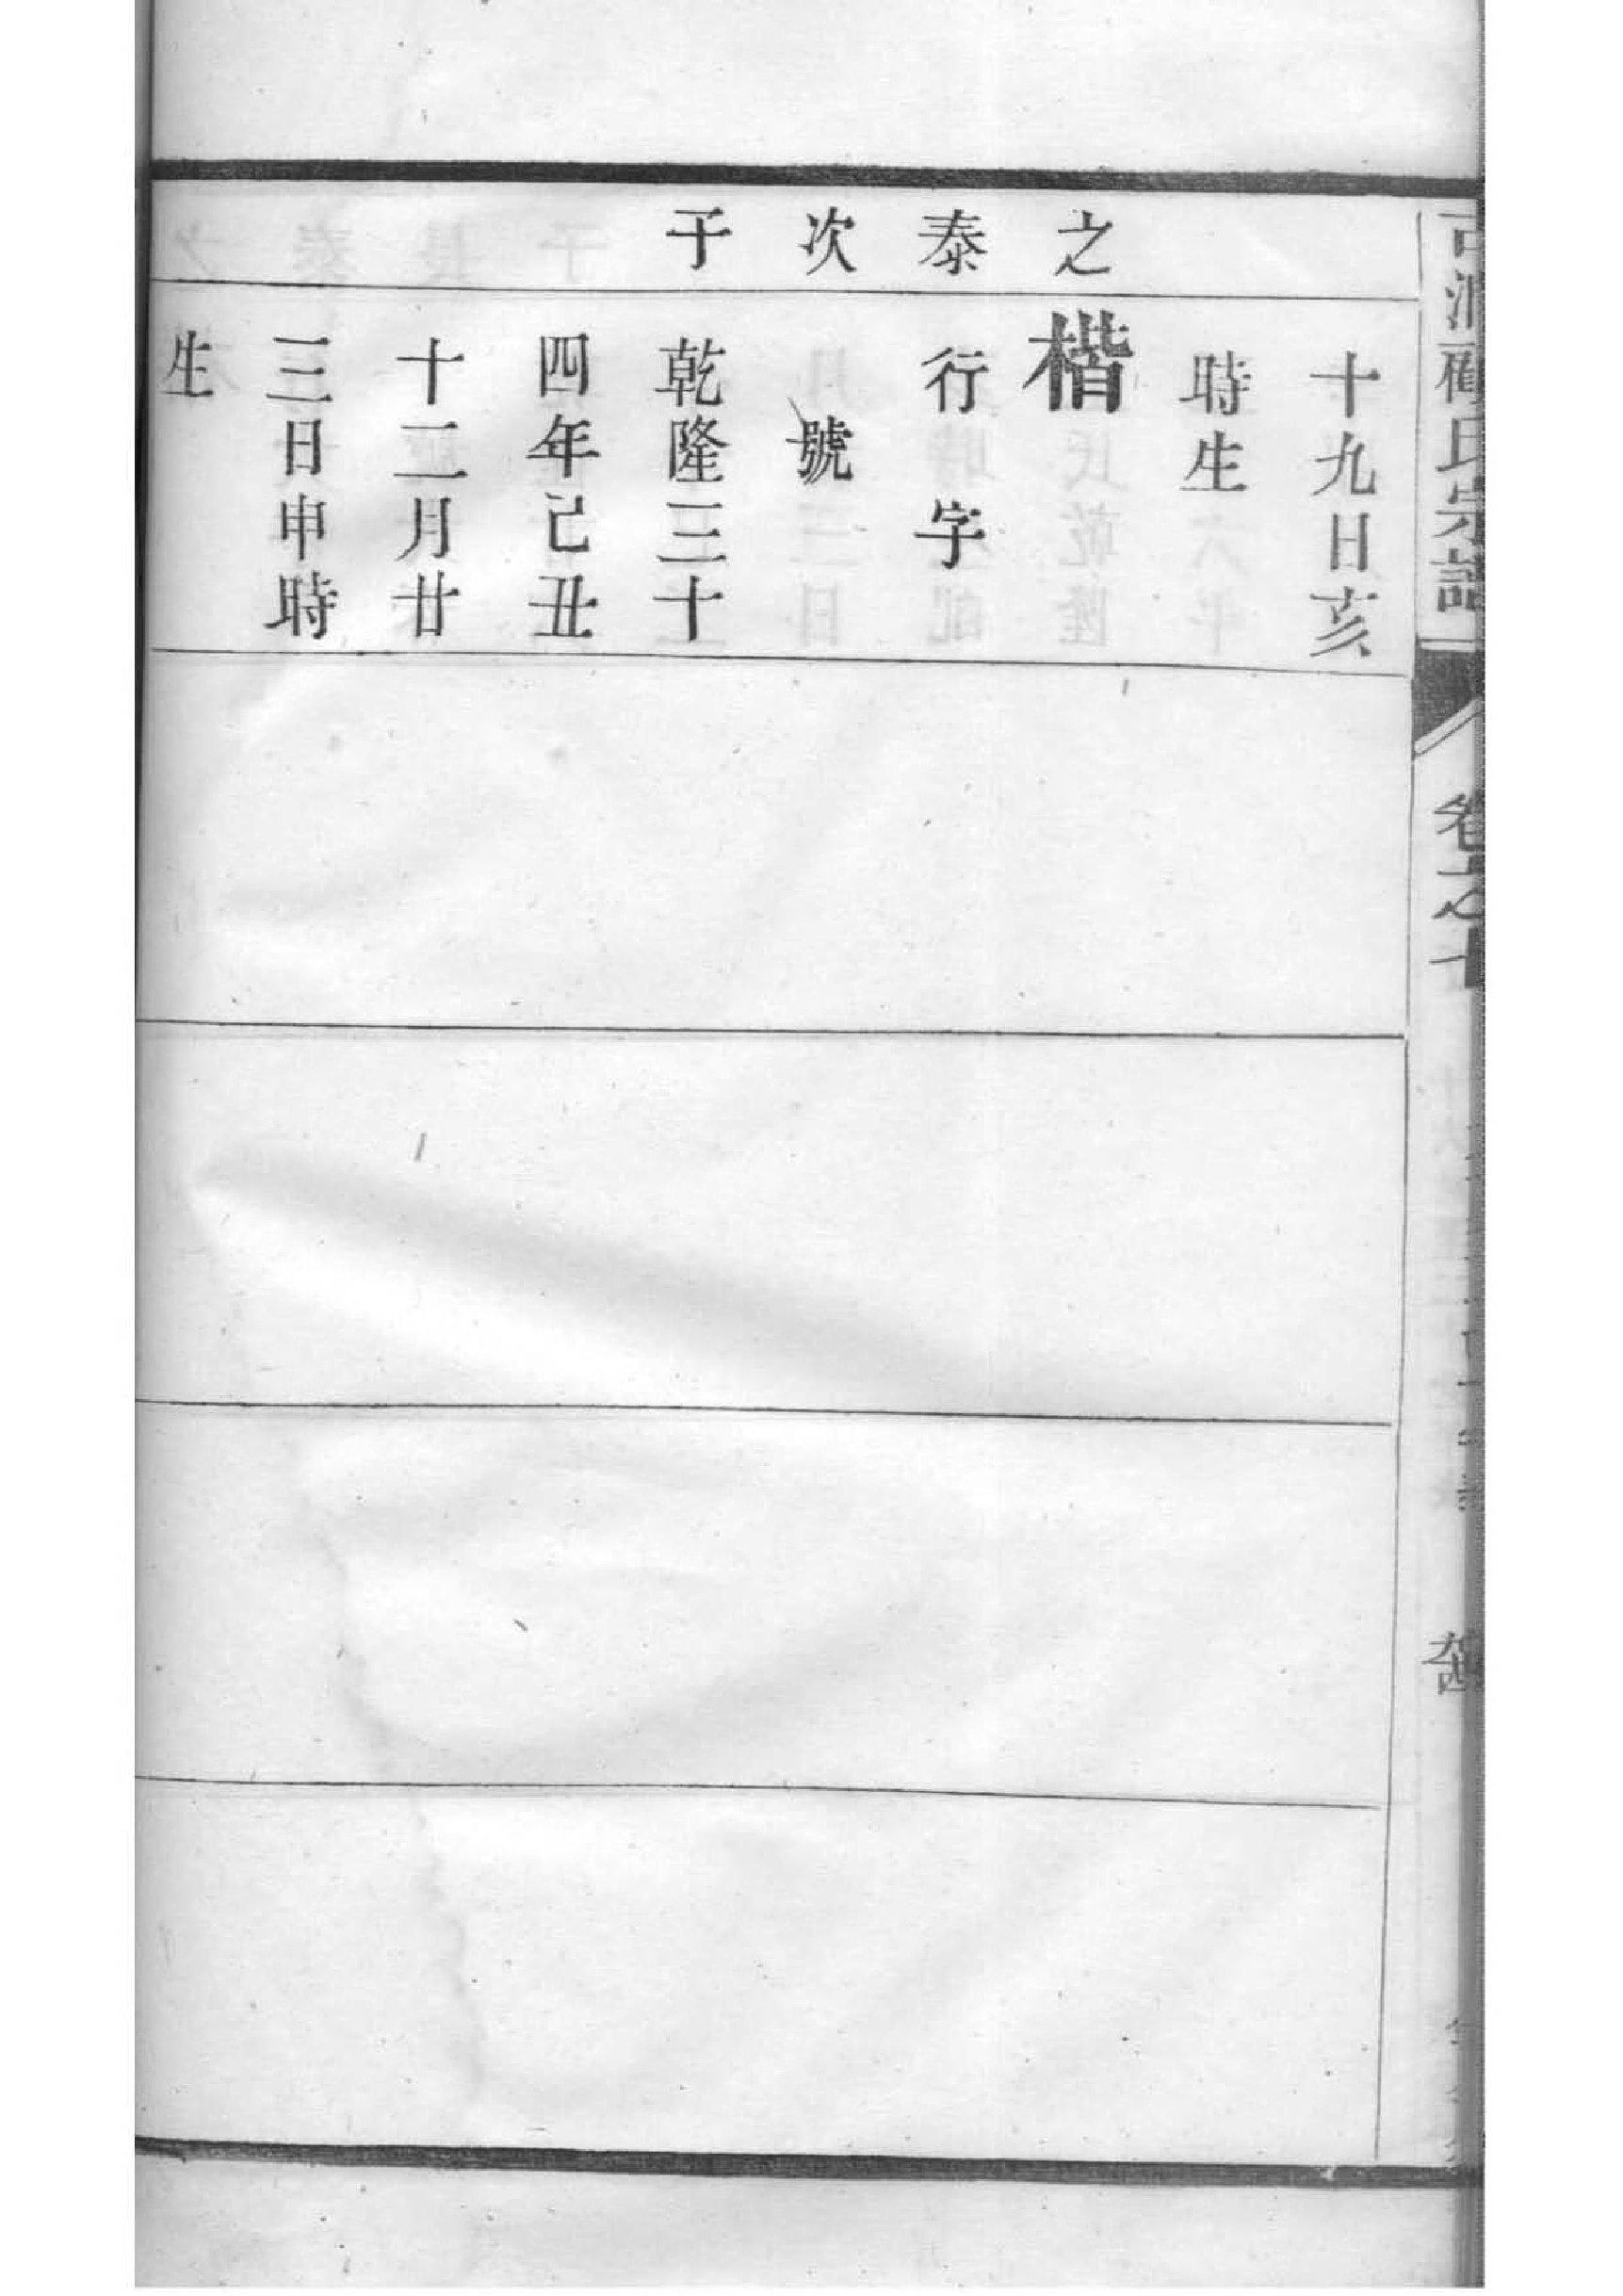 顧氏宗譜
之泰次子
十九日亥
時生
楷
行　字
號
乾隆三十
四年己丑
十二月廿
三日申時
生